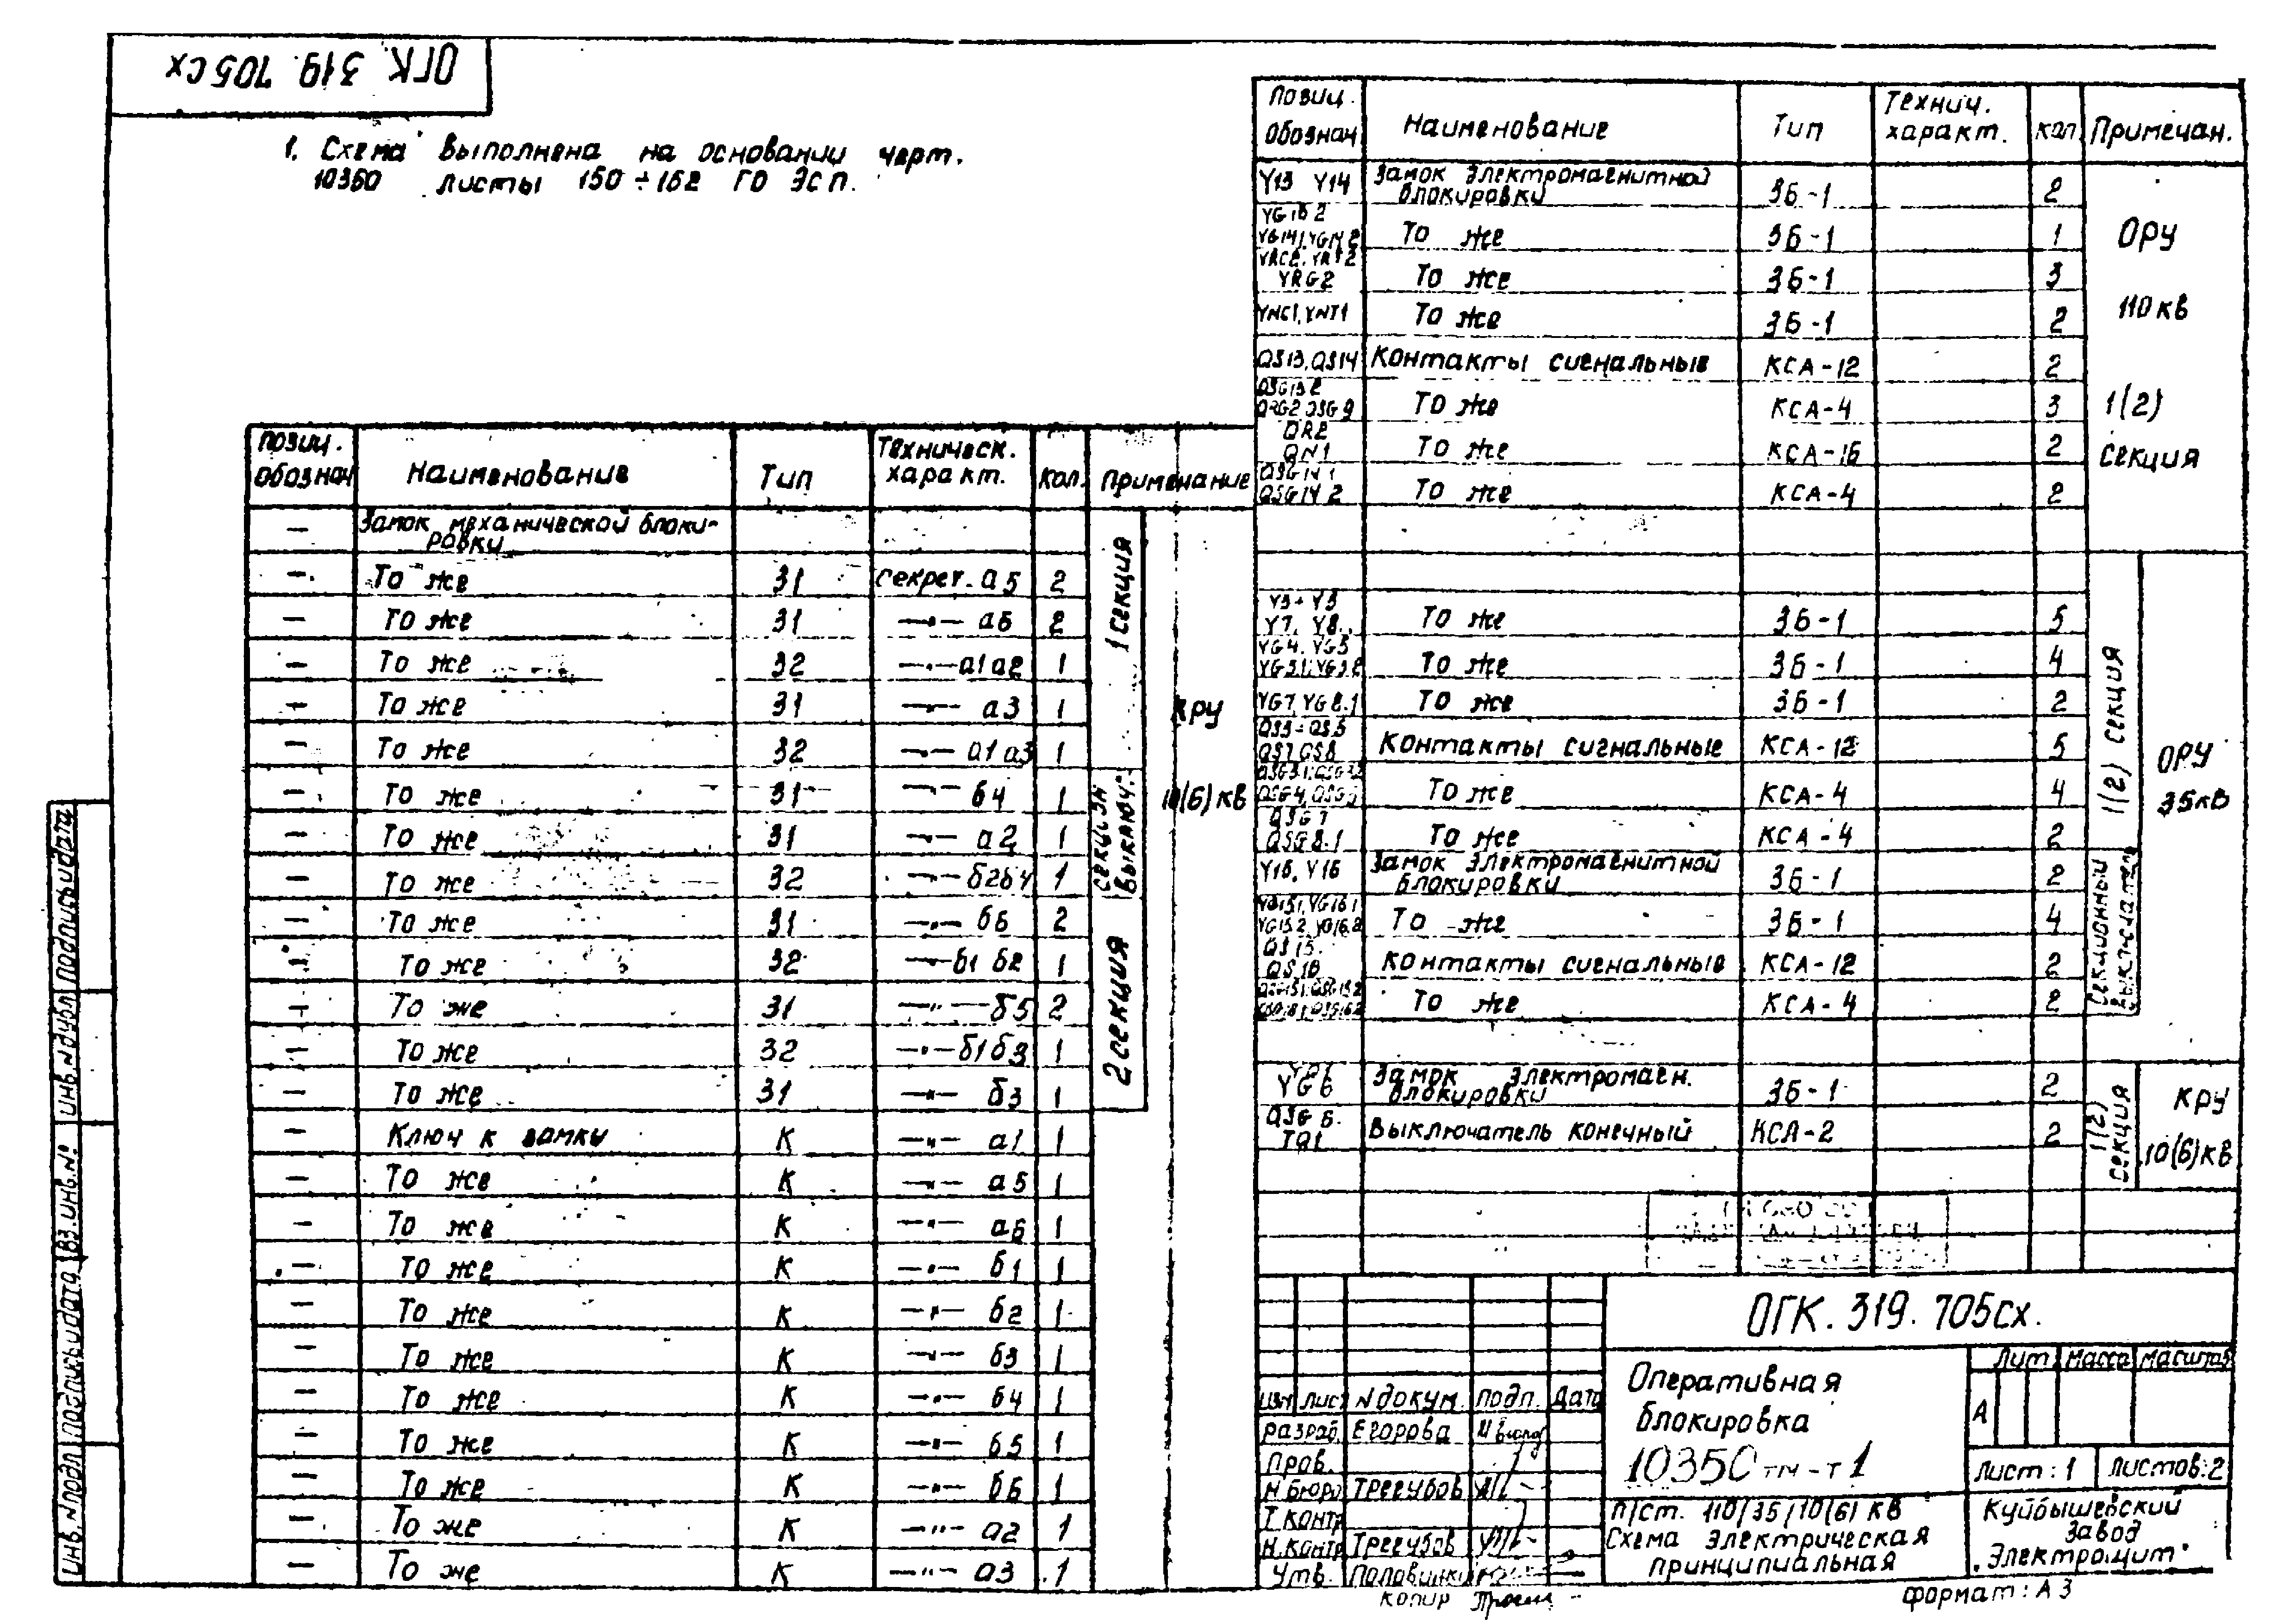 ОГК. 319. 705 сх
1. Схема выполнена на основании черт.
10350 листы 150÷152 ГО ЭСП.
Позиц. обознач | Наименование | Тип | Техническ. характ. | Кол. | Примечание
— | Замок механической блокировки
— | То же | З1 | секрет. а5 | 2
— | То же | З1 | —"— а6 | 2
— | То же | З2 | —"— а1а2 | 1
— | То же | З1 | —"— а3 | 1
— | То же | З2 | —"— а1а3 | 1
— | То же | З1 | —"— б4 | 1
— | То же | З1 | —"— а2 | 1
— | То же | З2 | —"— б2б4 | 1
— | То же | З1 | —"— б6 | 2
— | То же | З2 | —"— б1 б2 | 1
— | То же | З1 | —"— б5 | 2
— | То же | З2 | —"— б1б3 | 1
— | То же | З1 | —"— б3 | 1
— | Ключ к замку | К | —"— а1 | 1
— | То же | К | —"— а5 | 1
— | То же | К | —"— а6 | 1
— | То же | К | —"— б1 | 1
— | То же | К | —"— б2 | 1
— | То же | К | —"— б3 | 1
— | То же | К | —"— б4 | 1
— | То же | К | —"— б5 | 1
— | То же | К | —"— б6 | 1
— | То же | К | —"— а2 | 1
— | То же | К | —"— а3 | 1
1 секция
секц. выключ.
2 секция
КРУ
10(6) кв
Позиц. обознач | Наименование | Тип | Технич. характ. | Кол | Примечан.
Y13 Y14 | Замок электромагнитной блокировки | ЗБ-1 | 2
YG14.1, YG14.2 | То же | ЗБ-1 | 1
YRG2 | То же | ЗБ-1 | 3
YNC1, YNT1 | То же | ЗБ-1 | 2
QS13, QS14 | Контакты сигнальные | КСА-12 | 2
QSG13.2 QRG2 QSG9 | То же | КСА-4 | 3
QR2 QN1 | То же | КСА-16 | 2
QSG14.1 QSG14.2 | То же | КСА-4 | 2
ОРУ
110 кв
1(2)
секция
Y3÷Y5 Y7, Y8 | То же | ЗБ-1 | 5
YG4, YG5 YG3.1, YG3.2 | То же | ЗБ-1 | 4
YG7, YG8.1 | То же | ЗБ-1 | 2
QS3÷QS5 QS7, QS8 | Контакты сигнальные | КСА-12 | 5
QSG3.1, QSG3.2 QSG4, QSG5 | То же | КСА-4 | 4
QSG7 QSG8.1 | То же | КСА-4 | 2
Y15, Y16 | Замок электромагнитной блокировки | ЗБ-1 | 2
YG15.1, YG16.1 YG15.2, YG16.2 | То же | ЗБ-1 | 4
QS15. QS16 | Контакты сигнальные | КСА-12 | 2
То же | КСА-4 | 2
1(2) секция
Секционный выключатель
ОРУ
35кв
YG6 | Замок электромагн. блокировки | ЗБ-1 | 2
QSG6. | Выключатель конечный | КСА-2 | 2
1(2) секция
КРУ
10(6)кв
ОГК. 319. 705сх.
Изм Лист N докум. Подп. Дата
Разраб. Егорова
Пров.
Н.бюро Трегубов
Т.контр
Н.контр Трегубов
Утв.
Копир
Оперативная
блокировка
10350тм-т1
П/ст. 110/35/10(6) кв
Схема электрическая
принципиальная
Лит Масса Масштаб
А
Лист: 1 Листов: 2
Куйбышевский
Завод
"Электрощит"
формат: А3
Инв. N подл Подпись и дата Вз. инв. № Инв. N дубл Подпись и дата